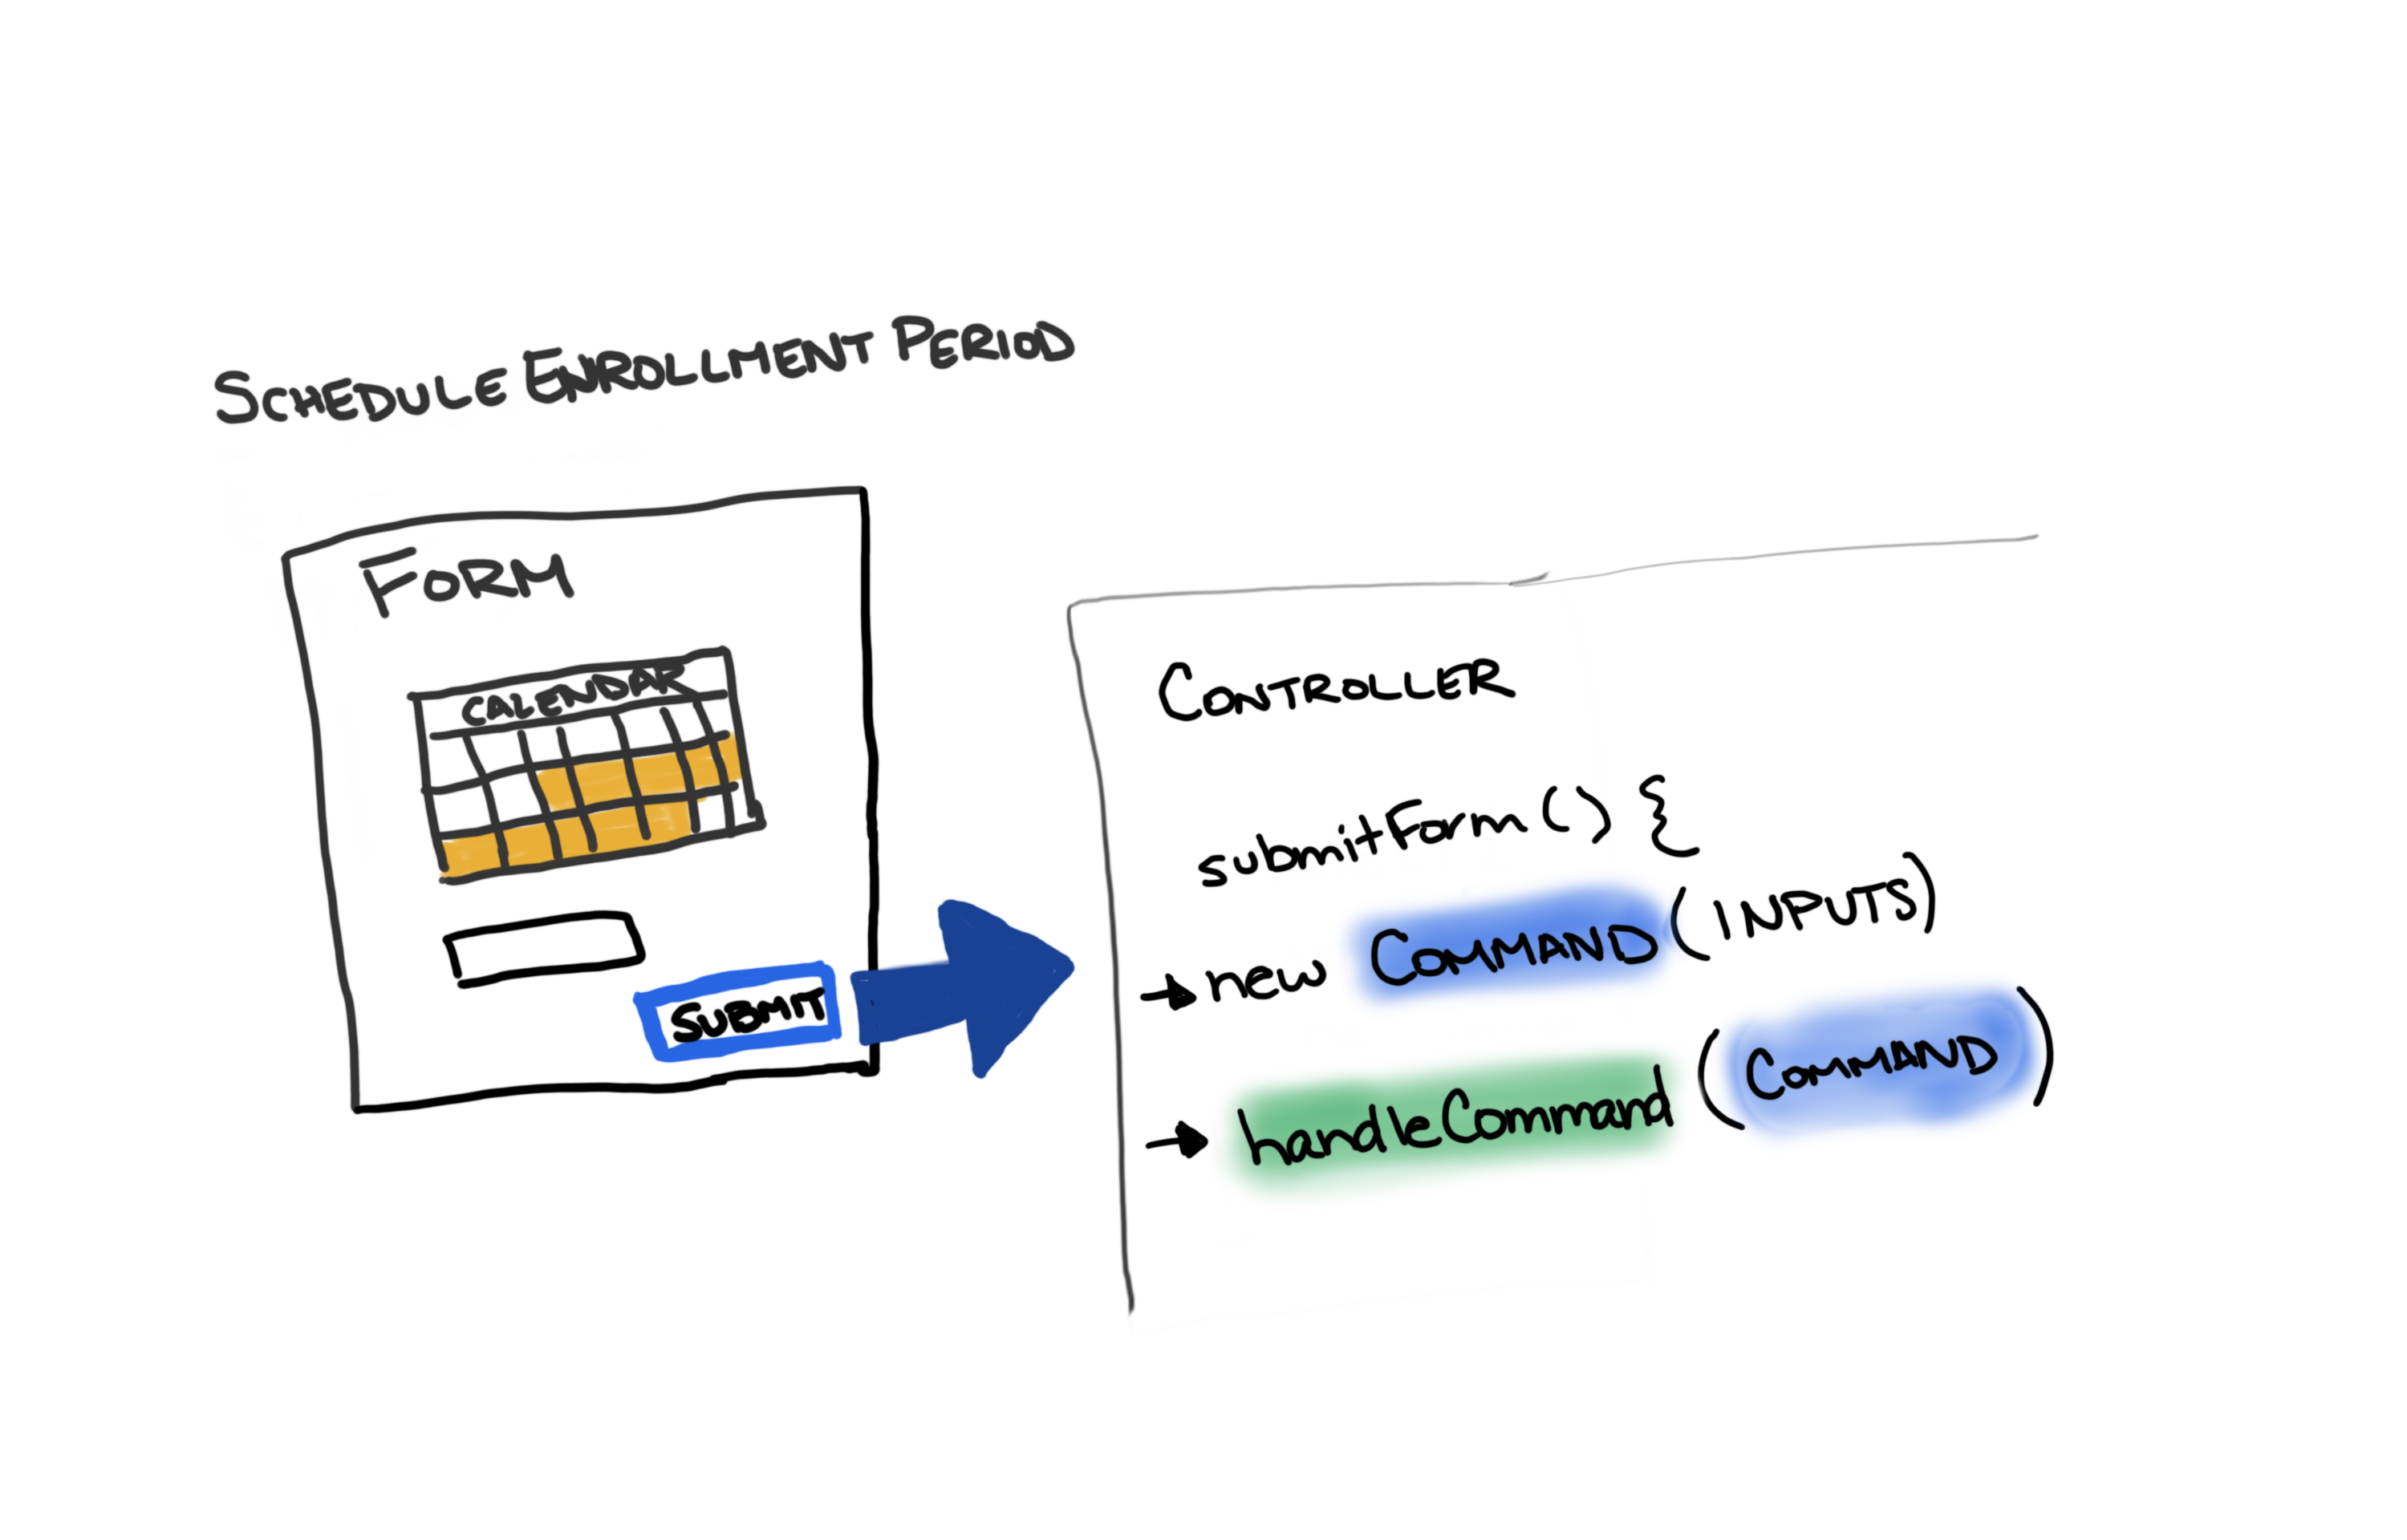 SCHEDULE ENROLLMENT PERIOD
FORM
CALENDAR
SUBMIT
CONTROLLER
submitForm() {
new COMMAND (INPUTS)
handleCommand (COMMAND)